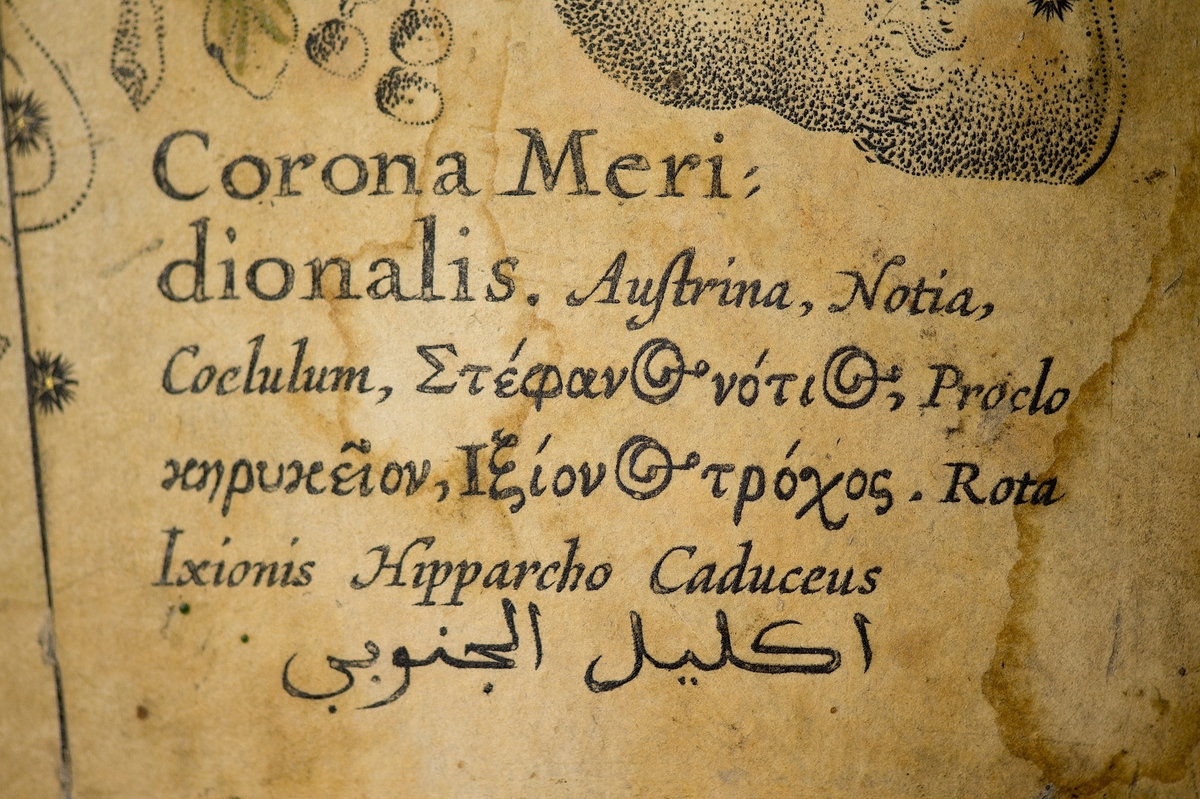 Corona Meri⸗
dionalis. Auſtrina, Notia,
Coelulum, Στέφανος νότιος, Proclo
κηρυκεῖον, Ιξίονος τρόχος. Rota
Ixionis Hipparcho Caduceus
اكليل الجنوبي